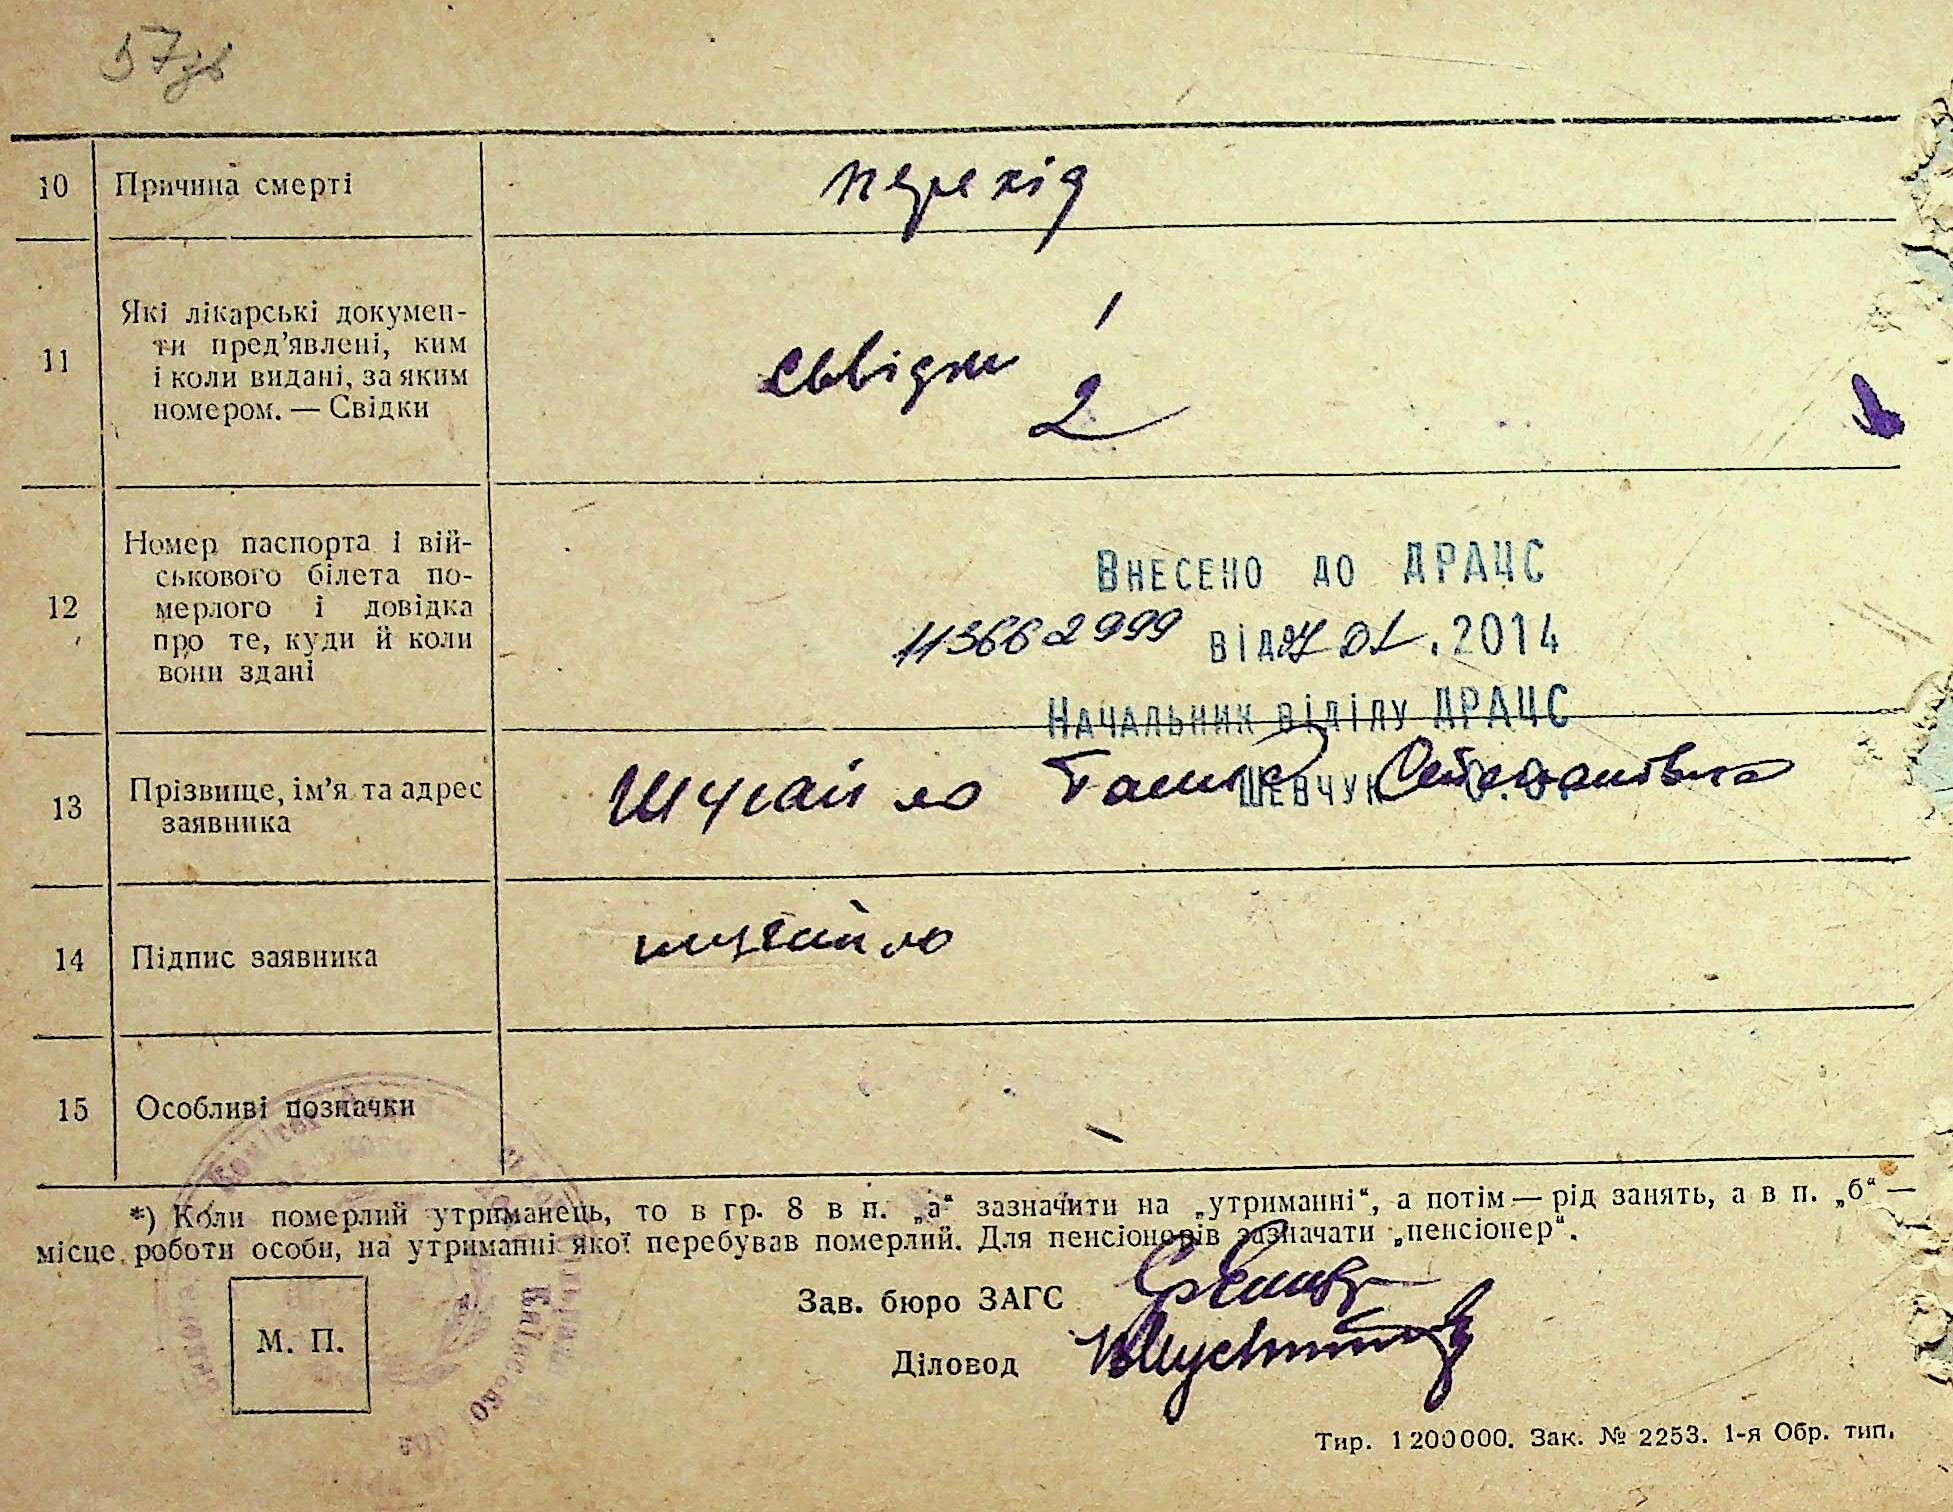 10 Причина смерті перехід
11 Які лікарські докумен-
ти пред’явлені, ким
і коли видані, за яким
номером. — Свідки
свідки
2
12 Номер паспорта і вій-
ськового білета по-
мерлого і довідка
про те, куди й коли
вони здані
Внесено до ДРАЦС
113662999 від 27.01.2014
Начальник відділу ДРАЦС
Шевчук
13 Прізвище, ім’я та адрес
заявника
14 Підпис заявника
15 Особливі позначки
*) Коли померлий утриманець, то в гр. 8 в п. „а“ зазначити на „утриманні“, а потім — рід занять, а в п. „б“ —
місце роботи особи, на утриманні якої перебував померлий. Для пенсіонерів зазначати „пенсіонер“.
Зав. бюро ЗАГС
М. П.
Діловод
Тир. 1200000. Зак. № 2253. 1-я Обр. тип.